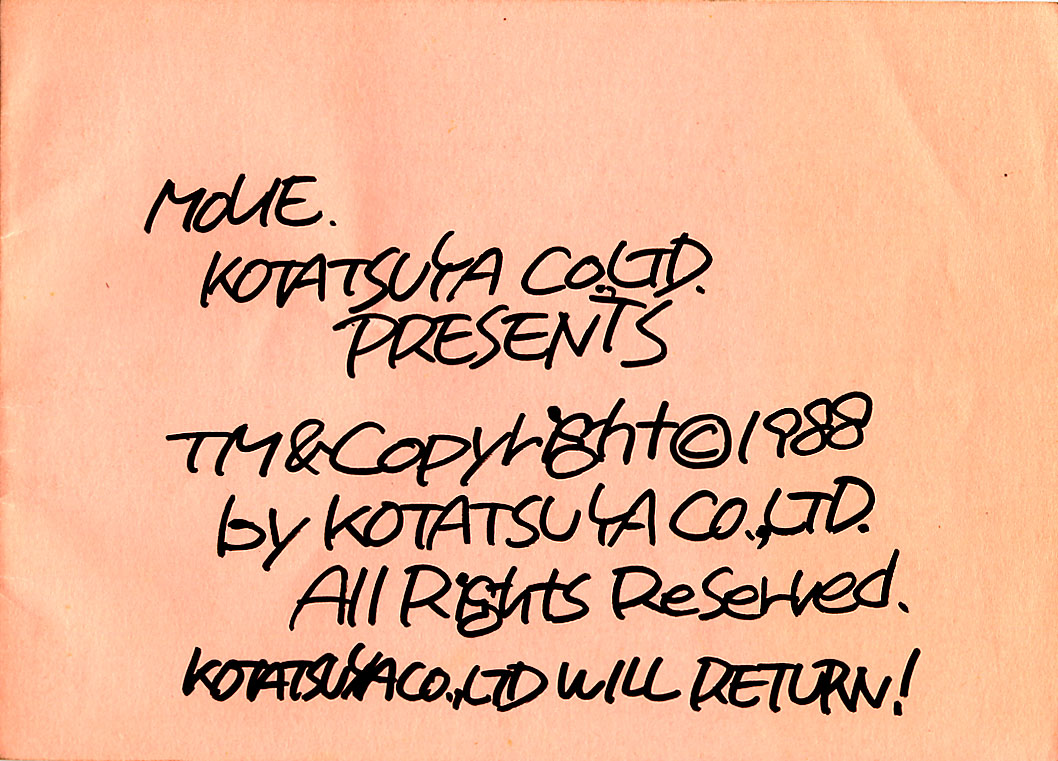 MOUE.
KOTATSUYA CO.,LTD.
PRESENTS
TM&Copyright©1988
by KOTATSUYA CO.,LTD.
All Rights Reserved.
KOTATSUYA CO.,LTD WILL RETURN!